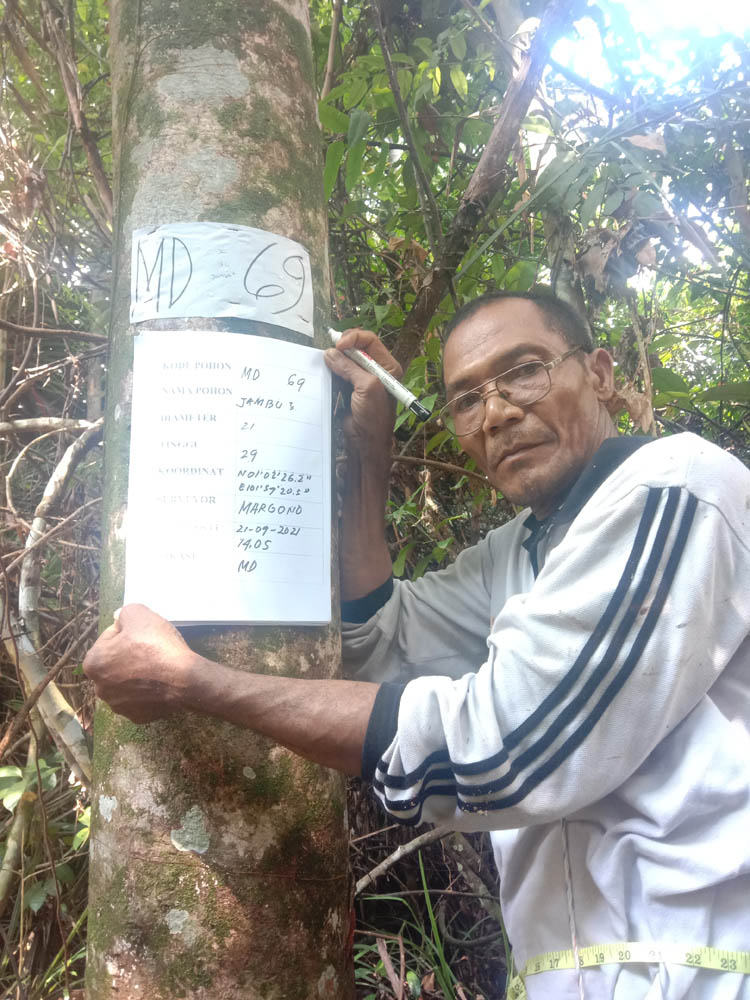 MD 69
KODE POHON MD 69
NAMA POHON JAMBU 3
DIAMETER 21
TINGGI 29
KOORDINAT N01°02'26.2"
E101°59'20.5"
SURVEYOR MARGONO
21-09-2021
14.05
MD
17 18 19 20 21 22 23